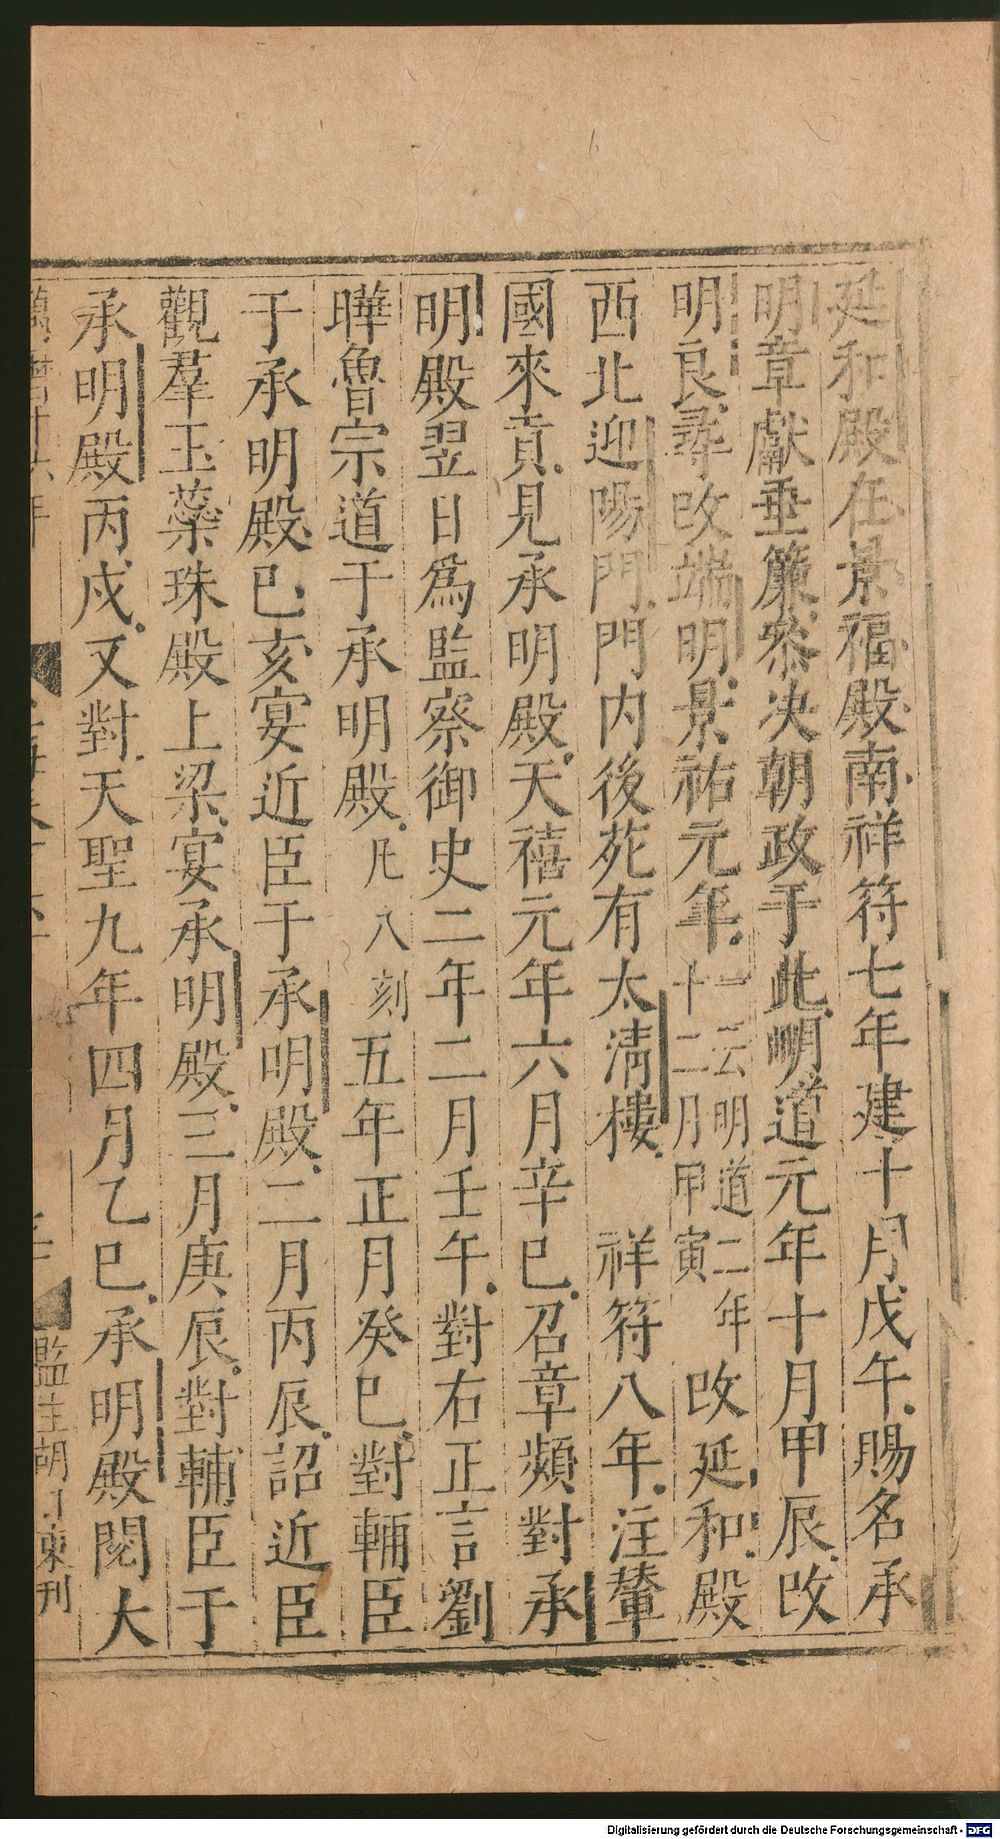 延和殿在景福殿南祥符七年建十月戊午賜名承
明章獻垂簾參决朝政于此明道元年十月甲辰改
明良尋改端明景祐元年一云明道二年十二月甲寅改延和殿
西北迎陽門門内後苑有太清樓 祥符八年注輦
國來貢見承明殿天禧元年六月辛巳召章頻對承
明殿翌日爲監察御史二年二月壬午對右正言劉
曄魯宗道于承明殿凡八刻五年正月癸巳對輔臣
于承明殿己亥宴近臣于承明殿二月丙辰詔近臣
觀羣玉蘂珠殿上梁宴承明殿三月庚辰對輔臣于
承明殿丙戌又對天聖九年四月乙巳承明殿閱大
年
監生胡
刊
Digitalisierung gefördert durch die Deutsche Forschungsgemeinschaft - DFG